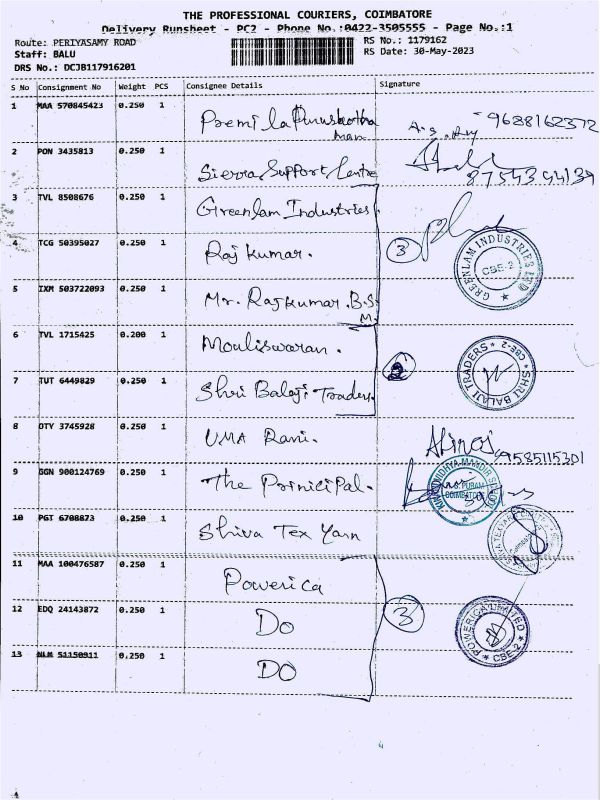 THE PROFESSIONAL COURIERS, COIMBATORE
Delivery Runsheet - PC2 - Phone No.:0422-3505555 - Page No.:1
Route: PERIYASAMY ROAD
RS No.: 1179162
Staff: BALU
RS Date: 30-May-2023
DRS No.: DCJB117916201
S No Consignment No Weight PCS Consignee Details Signature
1 MAA 570845423 0.250 1 Premila Purushotha
man 9688162372
2 PON 3435813 0.250 1 Sierra Support Centre 8754394139
3 TVL 8508676 0.250 1 Greenlam Industries
GREENLAM INDUSTRIES LTD
CBE-2
4 TCG 50395027 0.250 1 Rajkumar. 3
5 IXM 503722093 0.250 1 Mr. Rajkumar.B.S.
M.
6 TVL 1715425 0.200 1 Mouliswaran.
7 TUT 6449829 0.250 1 Shri Balaji Traders.
SHRI BALAJI TRADERS
CBE-2
8 OTY 3745928 0.250 1 UMA Rani. 9585115301
9 GGN 900124769 0.250 1 The Prinicipal.
COIMBATORE
10 PGT 6708873 0.250 1 Shiva Tex Yarn
11 MAA 100476587 0.250 1 Powerica
12 EDQ 24143872 0.250 1 Do 3
POWERICA LIMITED
CBE-2
13 NLM 51150911 0.250 1 Do